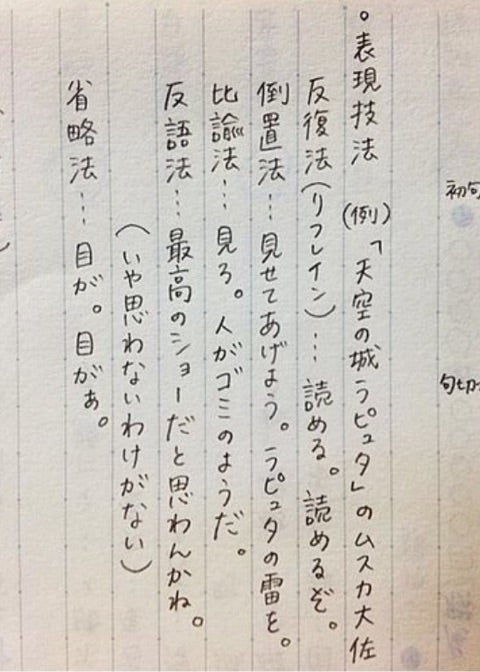 初句
句切
。表現技法 (例)「天空の城ラピュタ」のムスカ大佐
反復法(リフレイン)…読める。読めるぞ。
倒置法…見せてあげよう。ラピュタの雷を。
比諭法…見ろ。人がゴミのようだ。
反語法…最高のショーだと思わんかね。
(いや思わないわけがない)
省略法…目が。目がぁ。